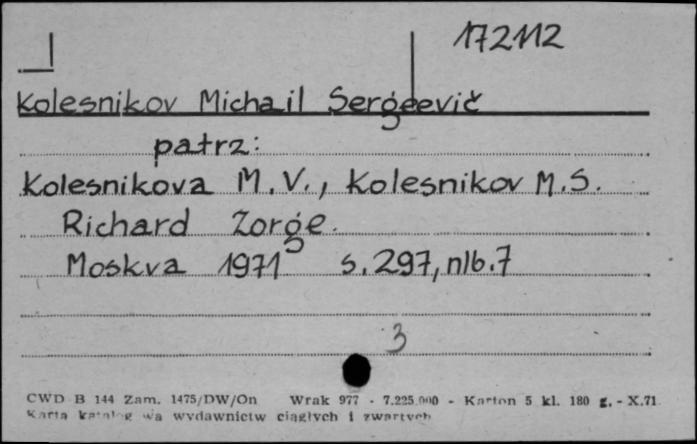 172112
Kolesnikov Michail Sergeevič
patrz:
Kolesnikova M.V., Kolesnikov M.S.
Richard Zorge.
Moskva 1971 s.297, nlb.7
3
CWD B 144 Zam. 1475/DW/On Wrak 977 - 7.225.000 - Karton 5 kl. 180 g. - X.71
Karta katalog wa wydawnictw ciągłych i zwartych